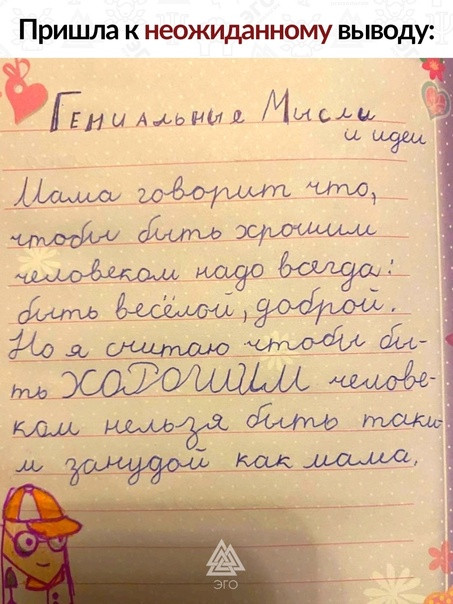 Пришла к неожиданному выводу:
Гениальные Мысли
и идеи
Мама говорит что,
чтобы быть хрошим
человеком надо всегда:
быть весёлой, доброй.
Но я считаю чтобы бы-
ть ХОРОШИМ челове-
ком нельзя быть таки-
м занудой как мама.
ЭГО